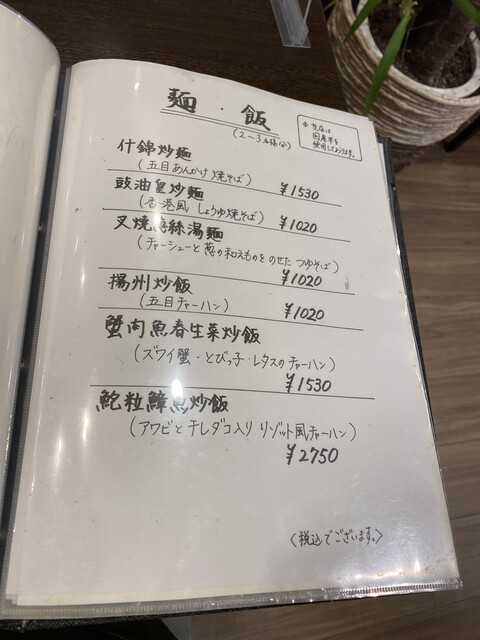 麺・飯
(2〜3名様分)
※当店は
国産米を
使用しております。
什錦炒麺
(五目あんかけ焼そば)
¥1530
豉油皇炒麺
(香港風 しょうゆ焼そば)
¥1020
叉焼 絲湯麺
(チャーシューと葱の和えものをのせた つゆそば)
¥1020
揚州炒飯
(五目チャーハン)
¥1020
蟹肉魚春生菜炒飯
(ズワイ蟹・とびっ子・レタスのチャーハン)
¥1530
鮑粒鱆魚炒飯
(アワビと干しダコ入り リゾット風チャーハン)
¥2750
〈税込でございます。〉